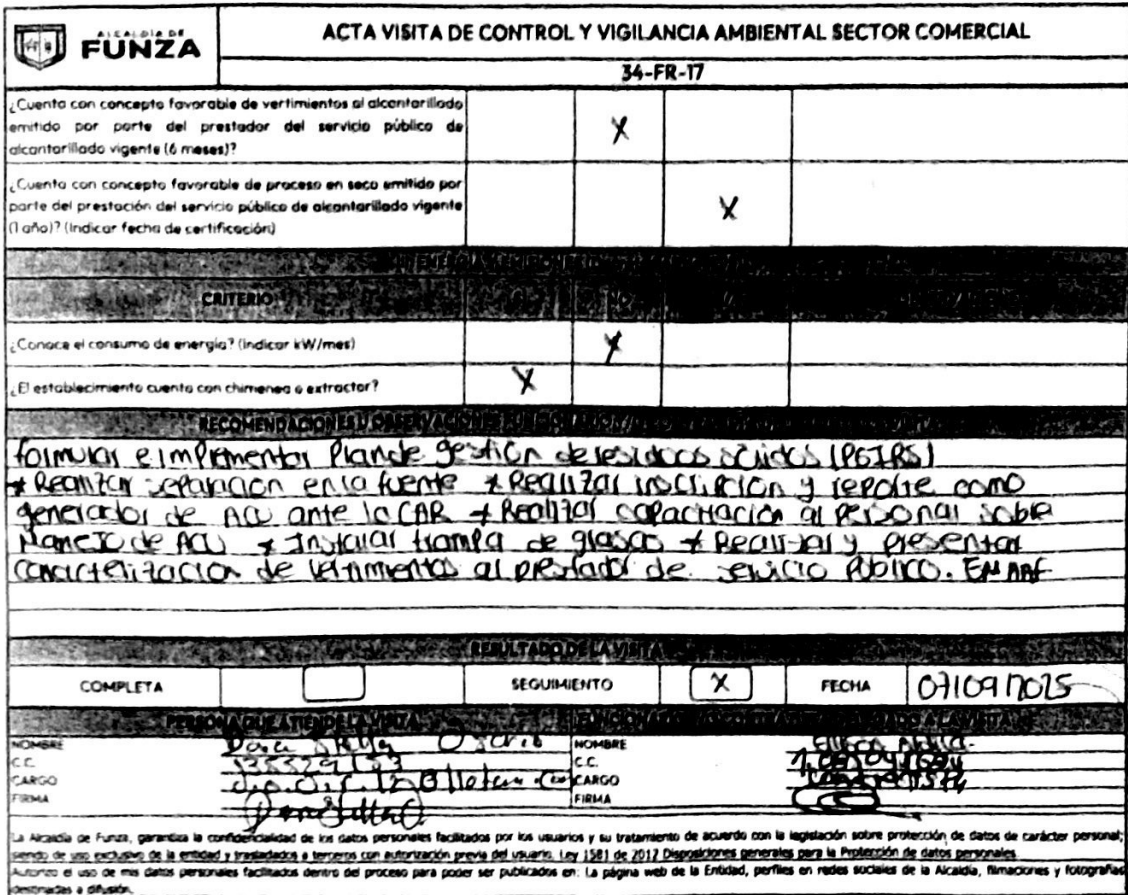 ALCALDÍA DE
FUNZA
ACTA VISITA DE CONTROL Y VIGILANCIA AMBIENTAL SECTOR COMERCIAL
34-FR-17
¿Cuenta con concepto favorable de vertimientos al alcantarillado
emitido por parte del prestador del servicio público de
alcantarillado vigente (6 meses)?
X
¿Cuenta con concepto favorable de proceso en seco emitido por
parte del prestación del servicio público de alcantarillado vigente
(1 año)? (Indicar fecha de certificación)
X
CRITERIO
¿Conoce el consumo de energía? (Indicar kW/mes)
X
¿El establecimiento cuenta con chimenea o extractor?
X
RECOMENDACIONES U OBSERVACIONES
formular e implementar Plan de gestión de residuos sólidos (PGIRS)
* Realizar separación en la fuente * Realizar inscripción y reporte como
generador de ACU ante la CAR * Realizar capacitación al personal sobre
Manejo de ACU * Instalar trampa de grasas * Realizar y presentar
caracterización de vertimientos al prestador de servicio Público. EMAAF
RESULTADO DE LA VISITA
COMPLETA
SEGUIMIENTO
X
FECHA
07/09/2025
PERSONA QUE ATIENDE LA VISITA
NOMBRE
Osorio
C.C.
CARGO
FIRMA
NOMBRE
C.C.
CARGO
Contratista
FIRMA
La Alcaldía de Funza, garantiza la confidencialidad de los datos personales facilitados por los usuarios y su tratamiento de acuerdo con la legislación sobre protección de datos de carácter personal;
siendo de uso exclusivo de la entidad y trasladados a terceros con autorización previa del usuario. Ley 1581 de 2012 Disposiciones generales para la Protección de datos personales.
Autorizo el uso de mis datos personales facilitados dentro del proceso para poder ser publicados en: La página web de la Entidad, perfiles en redes sociales de la Alcaldía, filmaciones y fotografías
destinadas a difusión.